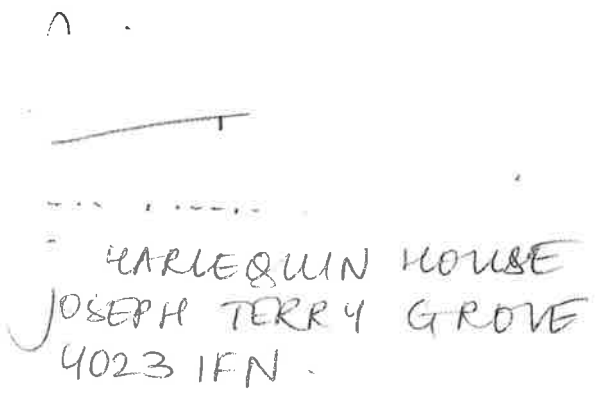 HARLEQUIN HOUSE
JOSEPH TERRY GROVE
YO23 1FN.